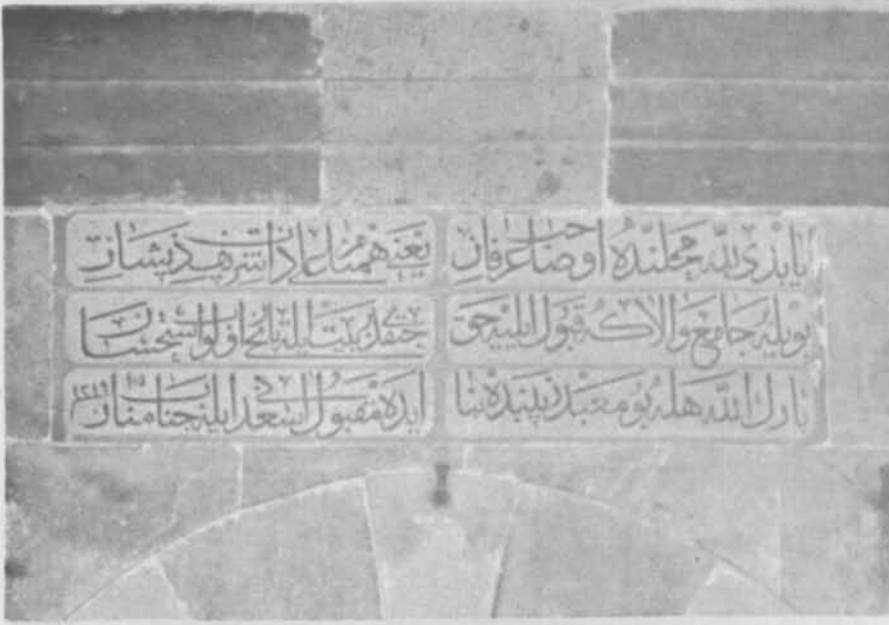 یاپدی لله محلنده او صاحب عرفان
یعنی همنام علی ذات شریف ذیشان
بویله جامع والا که قبول ایلیه حق
بیت ایله تاریخ اولوب استحسان
بارك الله هله بو معبد زیبنده بنا
ایده مقبول اسعد ایله جناب منان